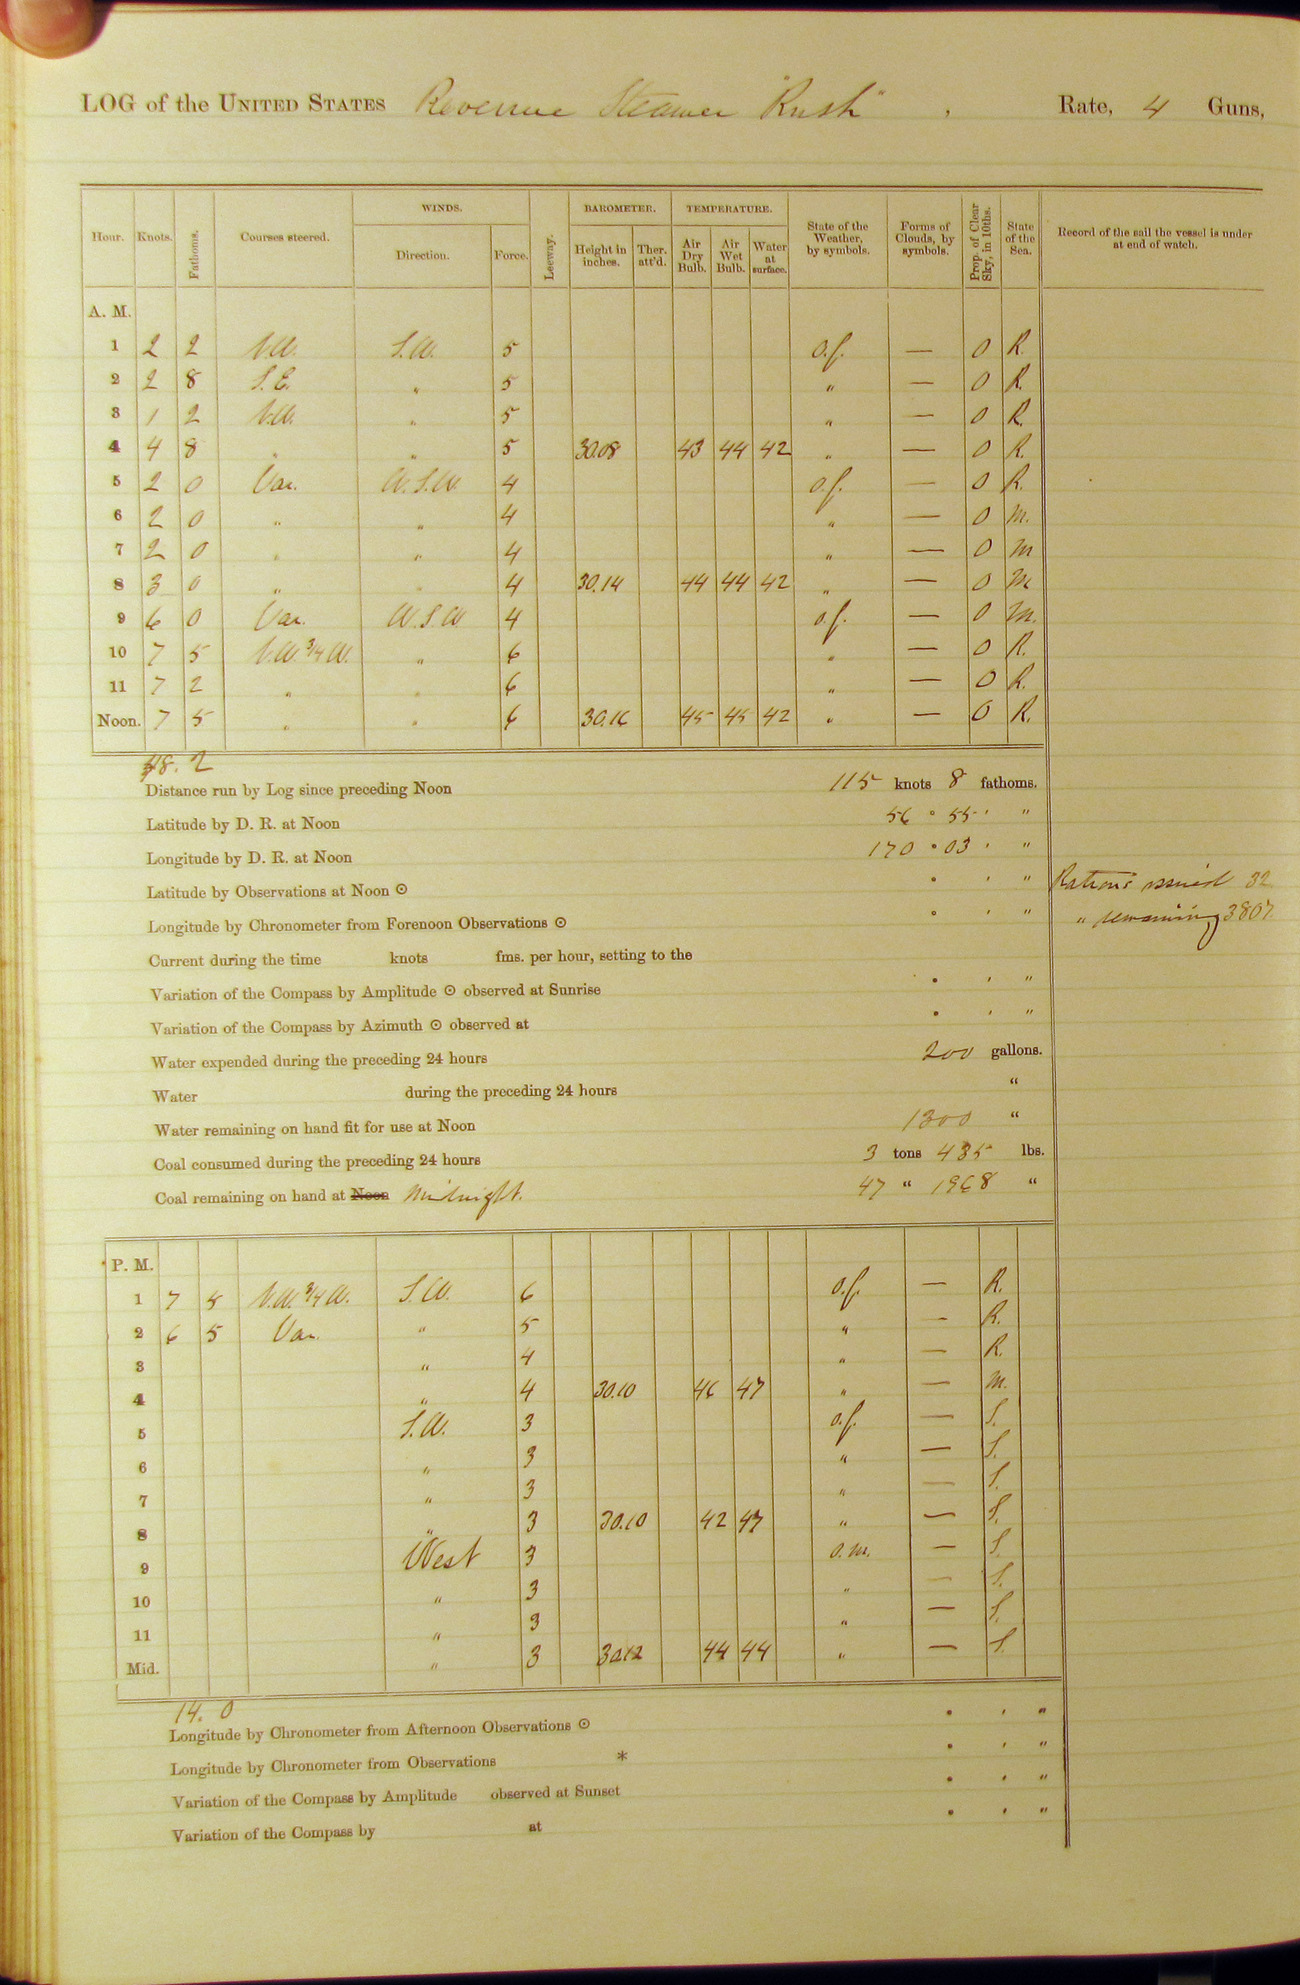 LOG of the UNITED STATES Revenue Steamer "Rush", Rate, 4 Guns,
WINDS. BAROMETER. TEMPERATURE.
Hour. Knots. Fathoms. Courses steered. Direction. Force. Leeway. Height in inches. Ther. att'd. Air Dry Bulb. Air Wet Bulb. Water at surface. State of the Weather, by symbols. Forms of Clouds, by symbols. Prop. of Clear Sky, in 10ths. State of the Sea. Record of the sail the vessel is under at end of watch.
A. M.
1 2 2 N.W. S.W. 5 o.f. — 0 R.
2 2 8 S.E. " 5 " — 0 R.
3 1 2 N.W. " 5 " — 0 R.
4 4 8 " " 5 30.08 43 44 42 " — 0 R.
5 2 0 Var. W.S.W. 4 o.f. — 0 R.
6 2 0 " " 4 " — 0 M.
7 2 0 " " 4 " — 0 M
8 3 0 " " 4 30.14 44 44 42 " — 0 M
9 6 0 Var. W.S.W 4 o.f. — 0 M.
10 7 5 N.W. 3/4 W. " 6 " — 0 R.
11 7 2 " " 6 " — 0 R.
Noon. 7 5 " " 6 30.16 45 45 42 " — 0 R.
48. 2
Distance run by Log since preceding Noon 115 knots 8 fathoms.
Latitude by D. R. at Noon 56 ° 55 ' "
Longitude by D. R. at Noon 170 ° 03 ' "
Latitude by Observations at Noon ☉ ° ' " Rations issued 32
Longitude by Chronometer from Forenoon Observations ☉ ° ' " " remaining 3807
Current during the time knots fms. per hour, setting to the
Variation of the Compass by Amplitude ☉ observed at Sunrise ° ' "
Variation of the Compass by Azimuth ☉ observed at ° ' "
Water expended during the preceding 24 hours 200 gallons.
Water during the preceding 24 hours "
Water remaining on hand fit for use at Noon 1300 "
Coal consumed during the preceding 24 hours 3 tons 435 lbs.
Coal remaining on hand at Noon Midnight. 47 " 1968 "
P. M.
1 7 5 N.W. 3/4 W. S.W. 6 o.f. — R.
2 6 5 Var. " 5 " — R.
3 " 4 " — R.
4 " 4 30.10 46 47 " — M.
5 S.W. 3 o.f. — S.
6 " 3 " — S.
7 " 3 " — S.
8 " 3 30.10 42 47 " — S.
9 West 3 o.m. — S.
10 " 3 " — S.
11 " 3 " — S.
Mid. " 3 30.12 44 44 " — S.
14. 0
Longitude by Chronometer from Afternoon Observations ☉ ° ' "
Longitude by Chronometer from Observations * ° ' "
Variation of the Compass by Amplitude observed at Sunset ° ' "
Variation of the Compass by at ° ' "